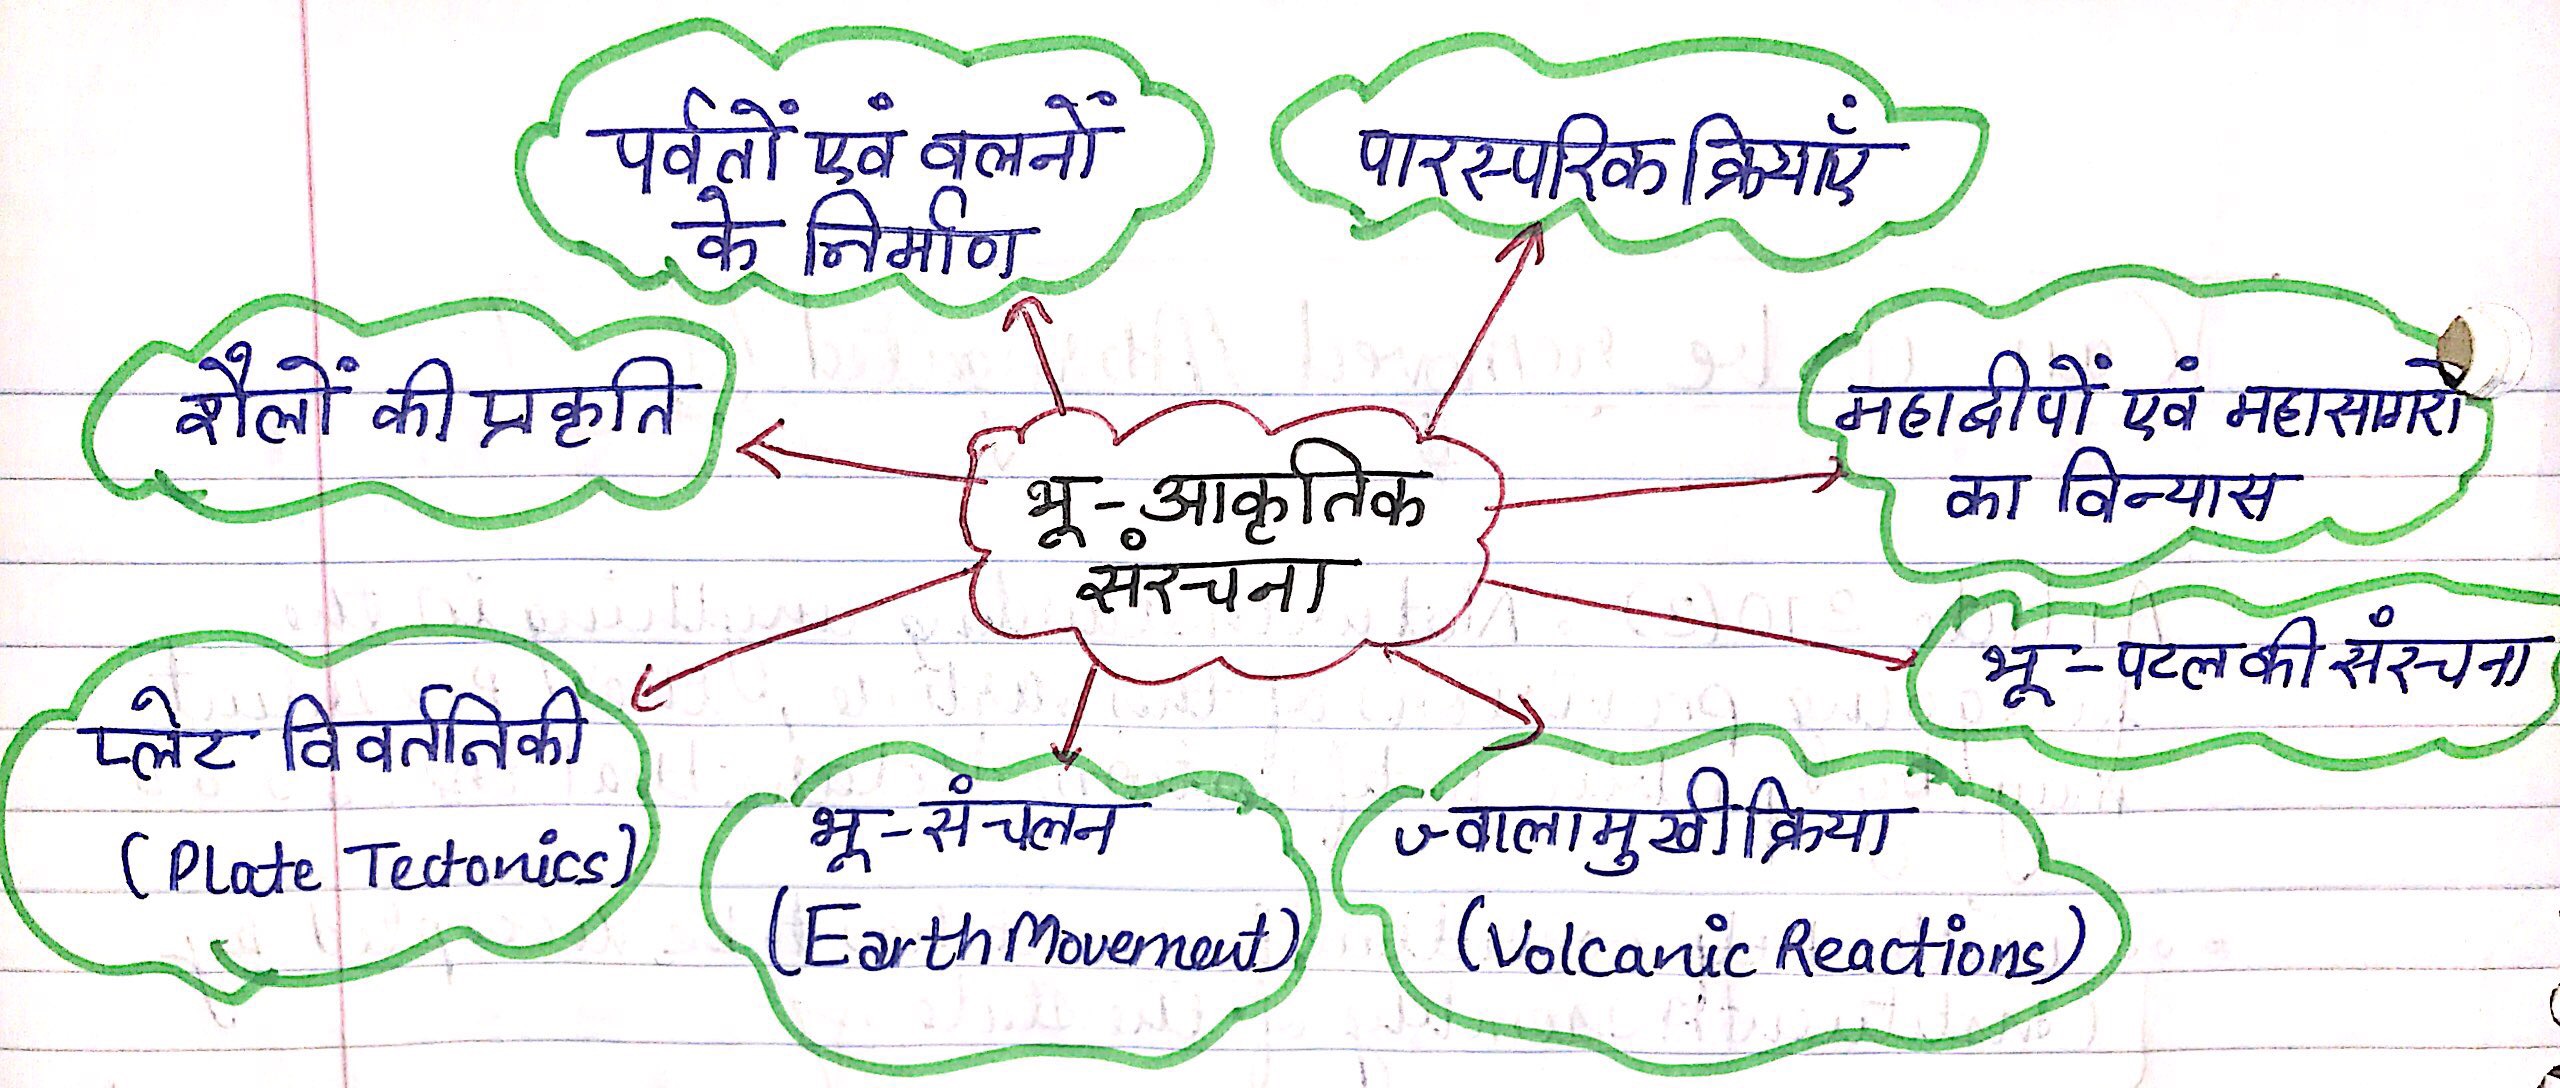 पर्वतों एवं वलनों
के निर्माण
पारस्परिक क्रियाएँ
शैलों की प्रकृति
महाद्वीपों एवं महासागरों
का विन्यास
भू-आकृतिक
संरचना
भू-पटल की संरचना
प्लेट विवर्तनिकी
(Plate Tectonics)
भू-संचलन
(Earth Movement)
ज्वालामुखी क्रिया
(Volcanic Reactions)